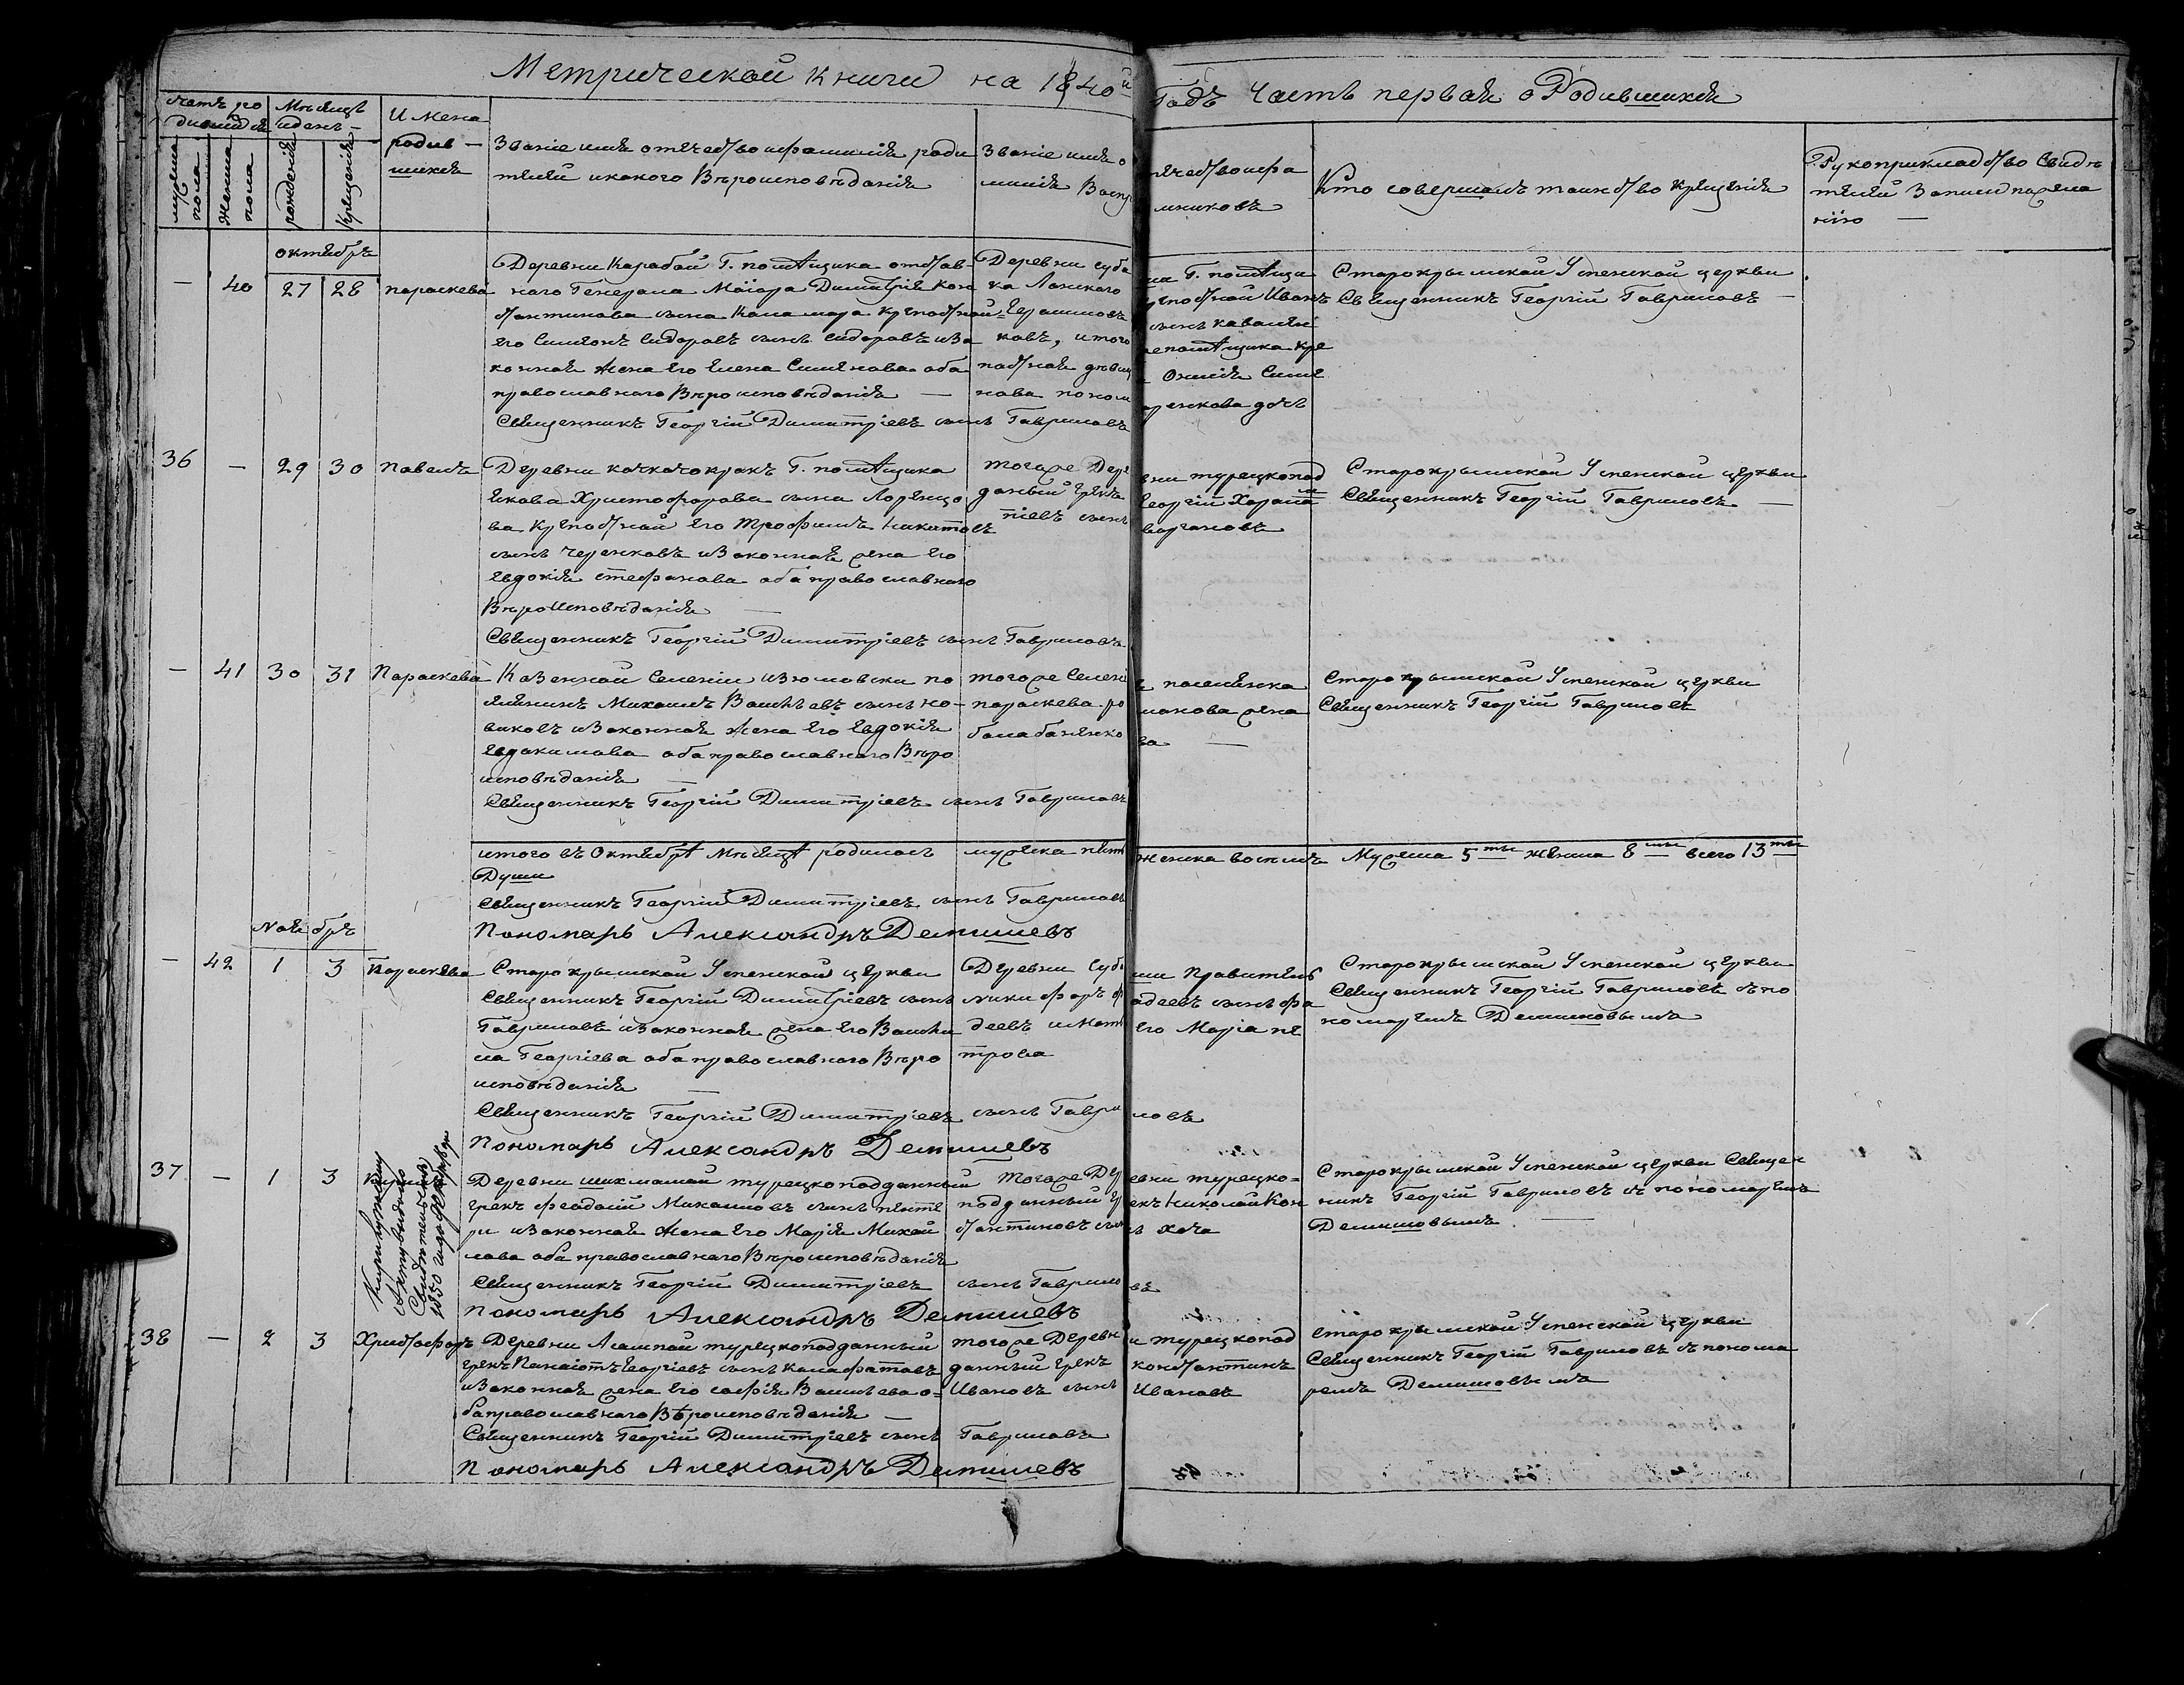 Метрической книги на 1840й
Годъ Часть первая о Родившихся
Мѣсяцъ
и день
Имена
родив-
шихся
мужеска
пола
женска
пола
рожденія
крещенія
Званіе имя отечество и фамилія роди
телей и какого Вѣроисповѣданія
Званіе имя о
течество и фа
милія Воспр
мниковъ
Кто совершалъ таинство крещенія
Рукоприкладство Свидѣ
телей Записи по жела
нію
октябръ
— 40 27 28 параскева
Деревни Карабай Г. помѣщика отстав-
наго Генерала Маіора Димитрія Кон
стантинова сына Качиони крепостной
его Симеонъ Сидоровъ сынъ Сидоровъ и за
конная жена его Елена Симѣнова оба
православнаго Вѣроисповѣданія —
Священникъ Георгій Димитріевъ сынъ Гавриловъ
Деревни суба
ша Г. помѣщи
ка Ланского
крепостной Иванъ
сынъ
ковъ, и того
же помѣщика кре
постная девиц
нова поном
аренкова дочь
Старокрымской Успенской церкви
Священникъ Георгій Гавриловъ —
36 — 29 30 павелъ
Деревни Г. помѣщика
Христофорова сына Лоренцо
ва Крепостной его Трофимъ Никитовъ
сынъ Черенковъ и законная жена его
Евдокія Стефанова оба православнаго
Вѣроисповѣданія —
Священникъ Георгій Димитріевъ сынъ Гавриловъ
тогоже Дере
вни турецкопод
даный грекъ
Георгій Харала
піевъ сынъ
Старокрымской Успенской церкви
Священникъ Георгій Гавриловъ —
— 41 30 31 Параскева
Казенной Селеніи изюмовки по
селянинъ Михаилъ Васильевъ сынъ но-
виковъ и законная жена его Евдокія
Евдокимова оба православнаго Вѣро
исповѣданія —
Священникъ Георгій Димитріевъ сынъ Гавриловъ
тогоже Селені
я поселянка
параскева ро
манова жена
балабаненко
ва —
Старокрымской Успенской церкви
Священникъ Георгій Гавриловъ
итого въ Октябрѣ Мѣсяцѣ родилось мужеска пять женска восемъ Мужеска 5ть женска 8мь всего 13ть
Души
Священникъ Георгій Димитріевъ сынъ Гавриловъ
Пономарь Александръ Демишевъ
Ноябръ
— 42 1 3 Параскева
Старокрымской Успенской церкви
Священникъ Георгій Димитріевъ сынъ
Гавриловъ и законная жена его Васили
са Георгіева оба православнаго Вѣро
исповѣданія —
Священникъ Георгій Димитріевъ сынъ Гавриловъ
Пономарь Александръ Демишевъ
Деревни Суба
ши Правитель
никифоръ ф
адеевъ сынъ фа
деевъ и мать
его Марія пе
трова
Старокрымской Успенской церкви
Священникъ Георгій Гавриловъ съ по
номаремъ Демишовымъ
37 — 1 3
1850 года
Деревни шихмамай турецкоподданный
грекъ Феодосій Михаиловъ сынъ
и законная жена его Марія Михай
лова оба православнаго Вѣроисповѣданія
Священникъ Георгій Димитріевъ сынъ Гавриловъ
Пономарь Александръ Демишевъ
тогоже Дер
евни турецко-
подданный гр
екъ Николай Кон
стантиновъ сын
ъ хоча
Старокрымской Успенской церкви Священ
никъ Георгій Гавриловъ съ пономаремъ
Демишовымъ —
38 — 2 3 Христофоръ
Деревни турецкоподданный
грекъ Панаіотъ Георгіевъ сынъ Калафатовъ
и законная жена его софія Васильева о-
ба православнаго Вѣроисповѣданія —
Священникъ Георгій Димитріевъ сынъ Гавриловъ
Пономарь Александръ Демишевъ
тогоже Деревн
и турецкопод
данный грек
константинъ
Ивановъ сынъ
Ивановъ
Старокрымской Успенской церкви
Священникъ Георгій Гавриловъ съ понома
ремъ Демишовымъ